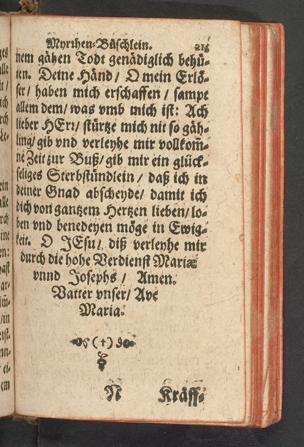 Myrthen-Büschlein. 215
nem gähen Todt genädiglich behü-
ten. Deine Händ / O mein Erlö-
ser / haben mich erschaffen / sampt
allem dem / was vmb mich ist: Ach
lieber HErr / stürtze mich nit so gäh-
ling / gib vnd verleyhe mir vollkom̃-
ne Zeit zur Buß / gib mir ein glück-
seliges Sterbstündlein / daß ich in
deiner Gnad abscheyde / damit ich
dich von gantzem Hertzen lieben / lo-
ben vnd benedeyen möge in Ewig-
keit. O JEsu / diß verleyhe mir
durch die hohe Verdienst Mariæ
vnnd Josephs / Amen.
Vatter vnser / Ave
Maria.
(†)
N Kräff-